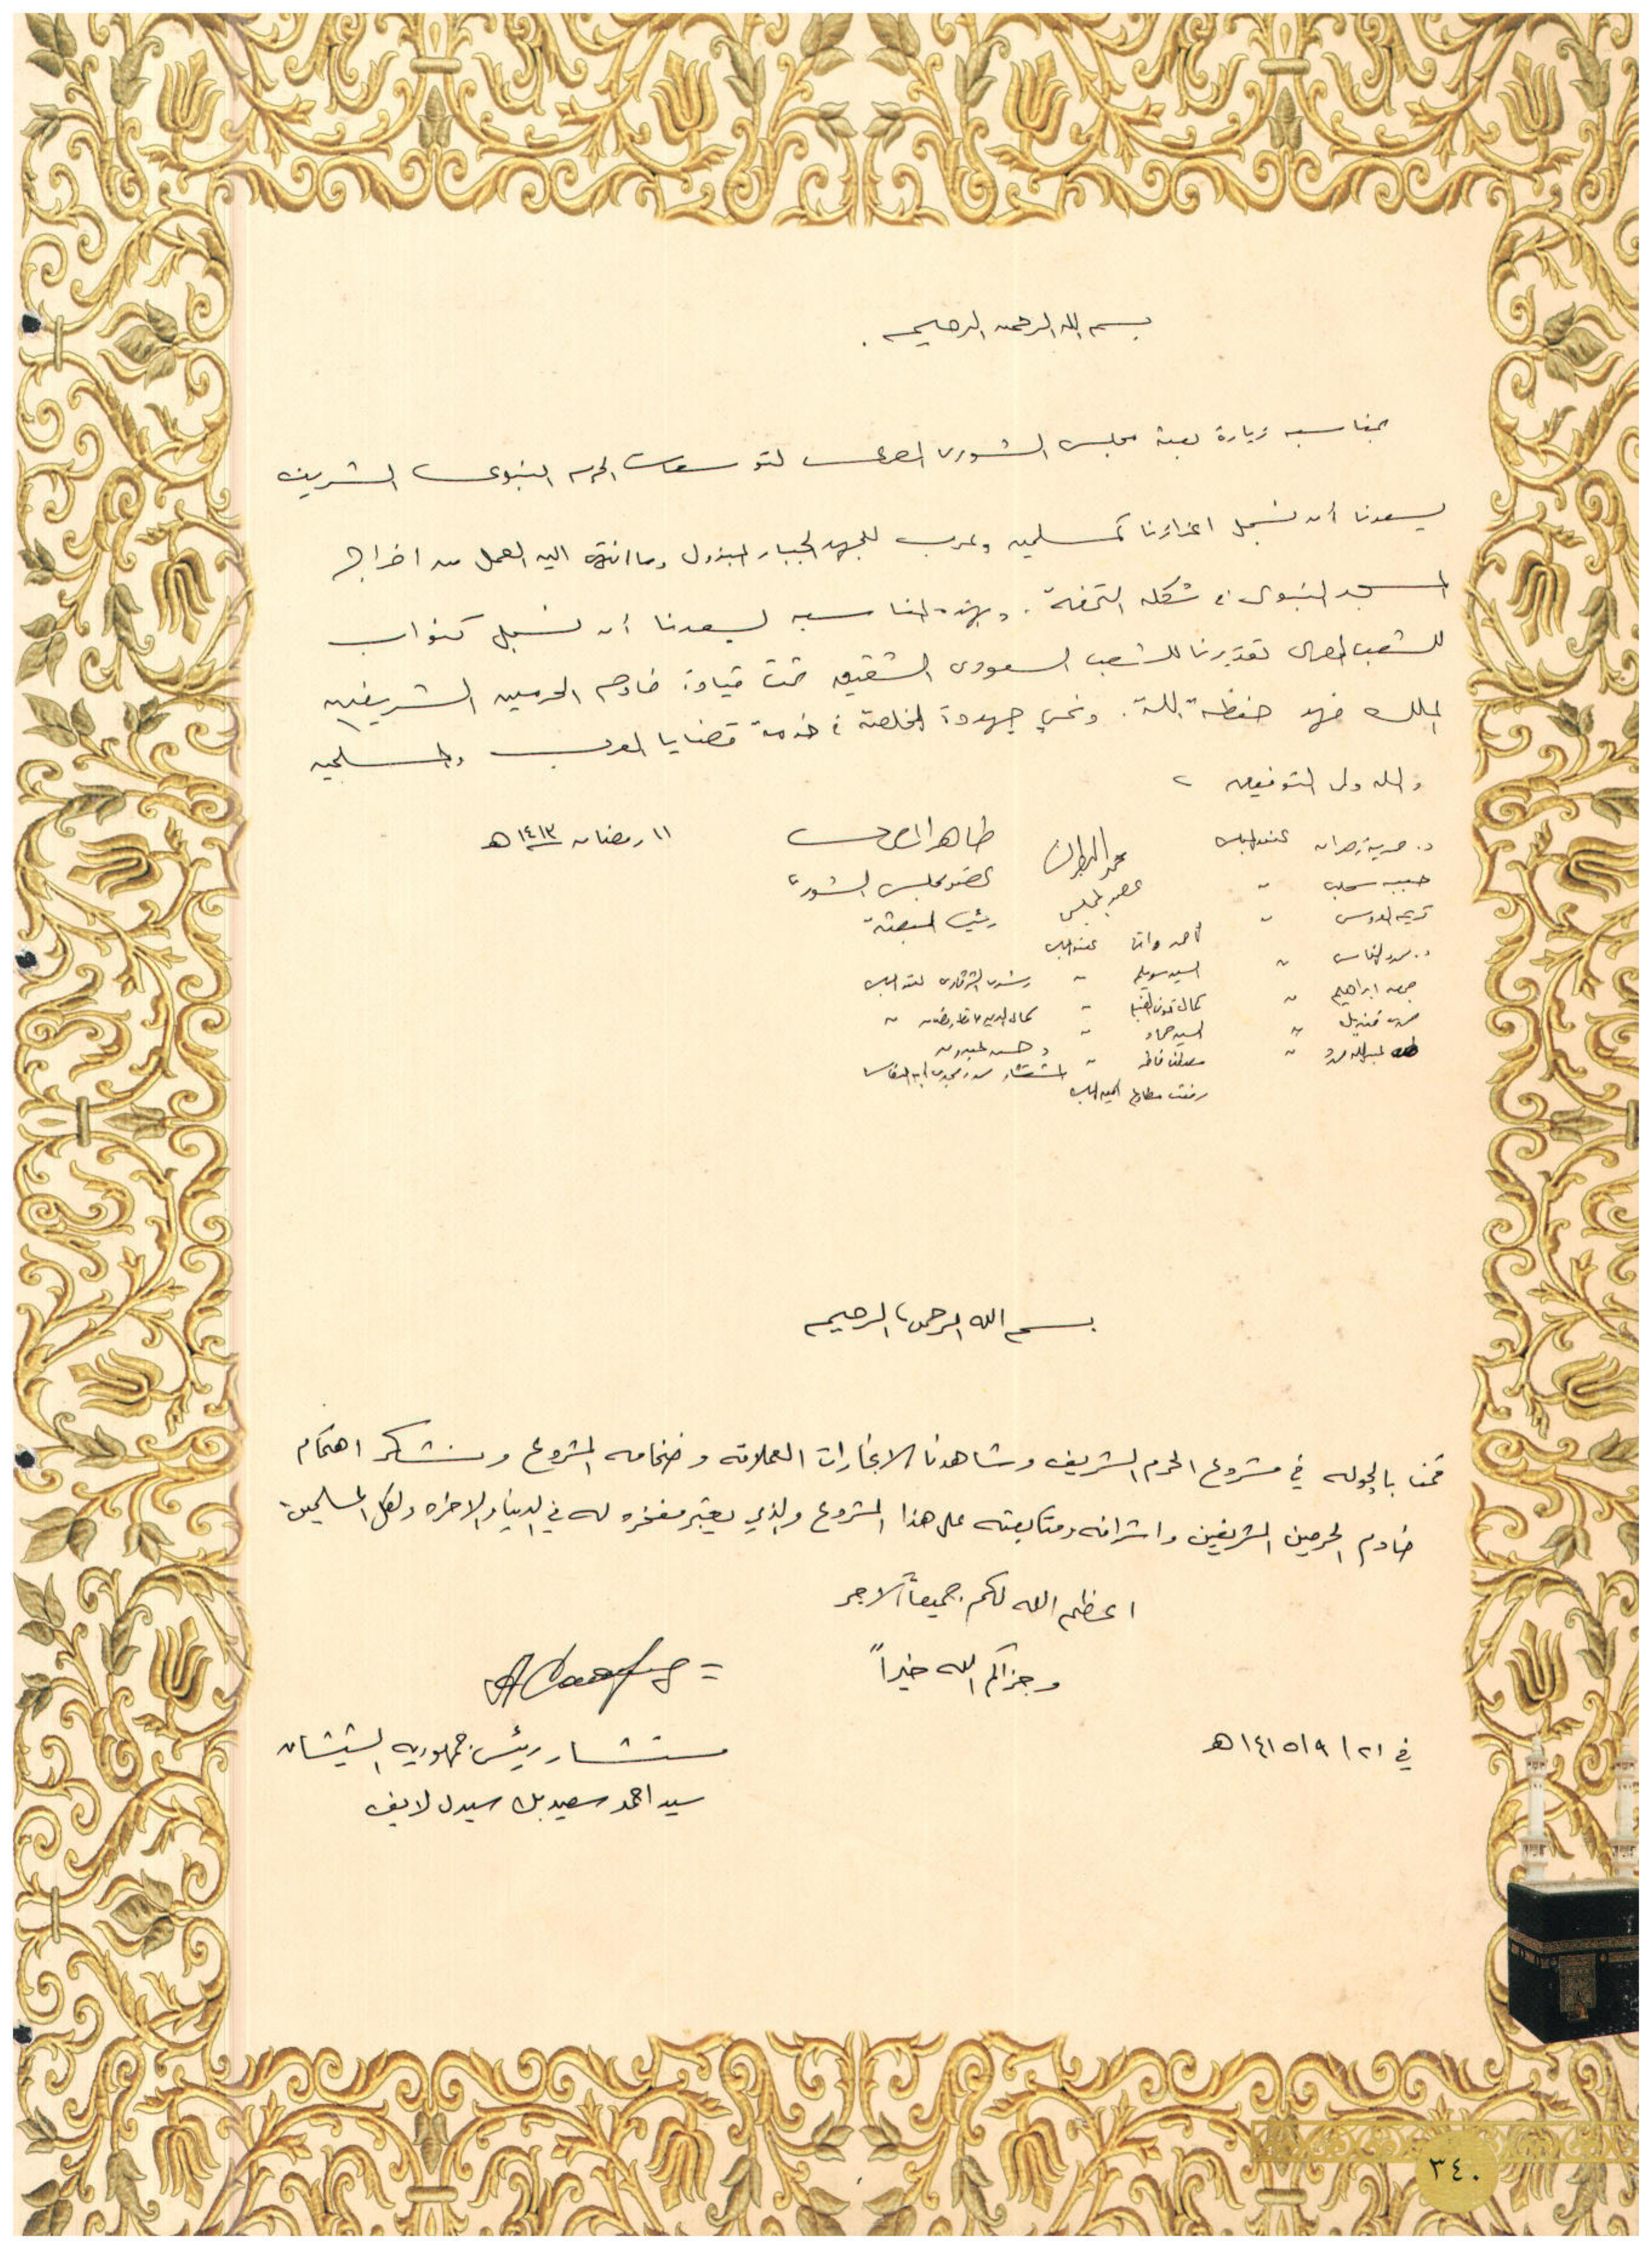 بسم الله الرحمن الرحيم .
بمناسبه زيارة بعثة مجلس الشورى المصرى لتوسعات الحرم النبوى الشريف
يسعدنا أن نسجل اعتزازنا كمسلمين وعرب للجهد الجبار المبذول وما انتهى اليه العمل من اخراج
المسجد النبوى فى شكله التحفة . وبهذه المناسبه يسعدنا أن نسجل كنواب
للشعب المصرى تقديرنا للشعب السعودى الشقيق تحت قيادة خادم الحرمين الشريفين
الملك فهد حفظه الله . ونحيي جهوده المخلصة فى خدمة قضايا العرب والمسلمين
والله ولى التوفيق
طاهر المصرى
١١ رمضان ١٤١٣ هـ
عضو مجلس الشورى
رئيس البعثة
د. حورية زهران عضو المجلس
عضو المجلس
السيد سويلم
رشدى الشرقاوى عضو المجلس
جمعه ابراهيم
السيد حماد
بسم الله الرحمن الرحيم
قمنا بالجوله في مشروع الحرم الشريف وشاهدنا الانجازات العملاقه وضخامه المشروع ونشكر اهتمام
خادم الحرمين الشريفين واشرافه ومتابعته على هذا المشروع والذي يعتبر مفخره له في الدنيا والاخره ولكل المسلمين
اعظم الله لكم جميعاً الاجر
وجزاكم الله خيراً
في ٢١/٩/١٤١٥هـ
مستشار رئيس جمهورية الشيشان
سيد احمد سعيد بك
٣٤٠